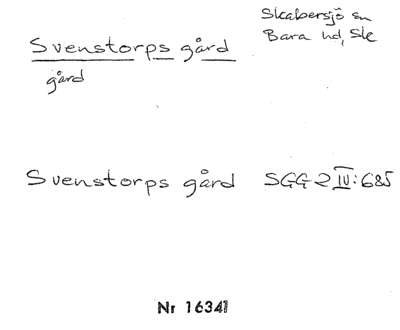 Skabersjö sn
Bara hd, Sk
Svenstorps gård
gård
Svenstorps gård SGG 2 IV: 685
Nr 16341